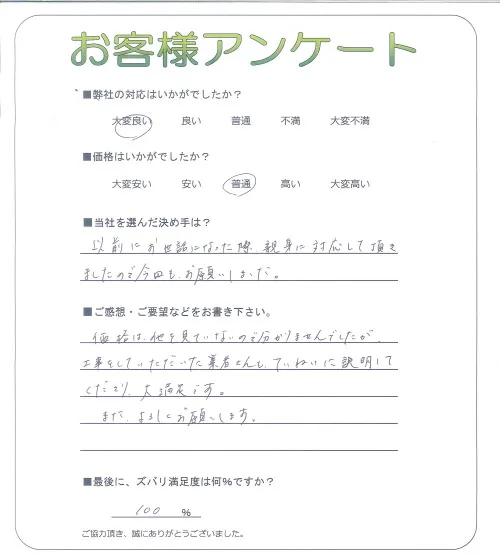 お客様アンケート
■弊社の対応はいかがでしたか？
大変良い 良い 普通 不満 大変不満
■価格はいかがでしたか？
大変安い 安い 普通 高い 大変高い
■当社を選んだ決め手は？
以前にお世話になった際、親身に対応して頂き
ましたので今回もお願いしました。
■ご感想・ご要望などをお書き下さい。
価格は、他を見ていないので分かりませんでしたが、
工事をしていただいた業者さんも、ていねいに説明して
くださり、大満足です。
また、よろしくお願いします。
■最後に、ズバリ満足度は何％ですか？
100 ％
ご協力頂き、誠にありがとうございました。